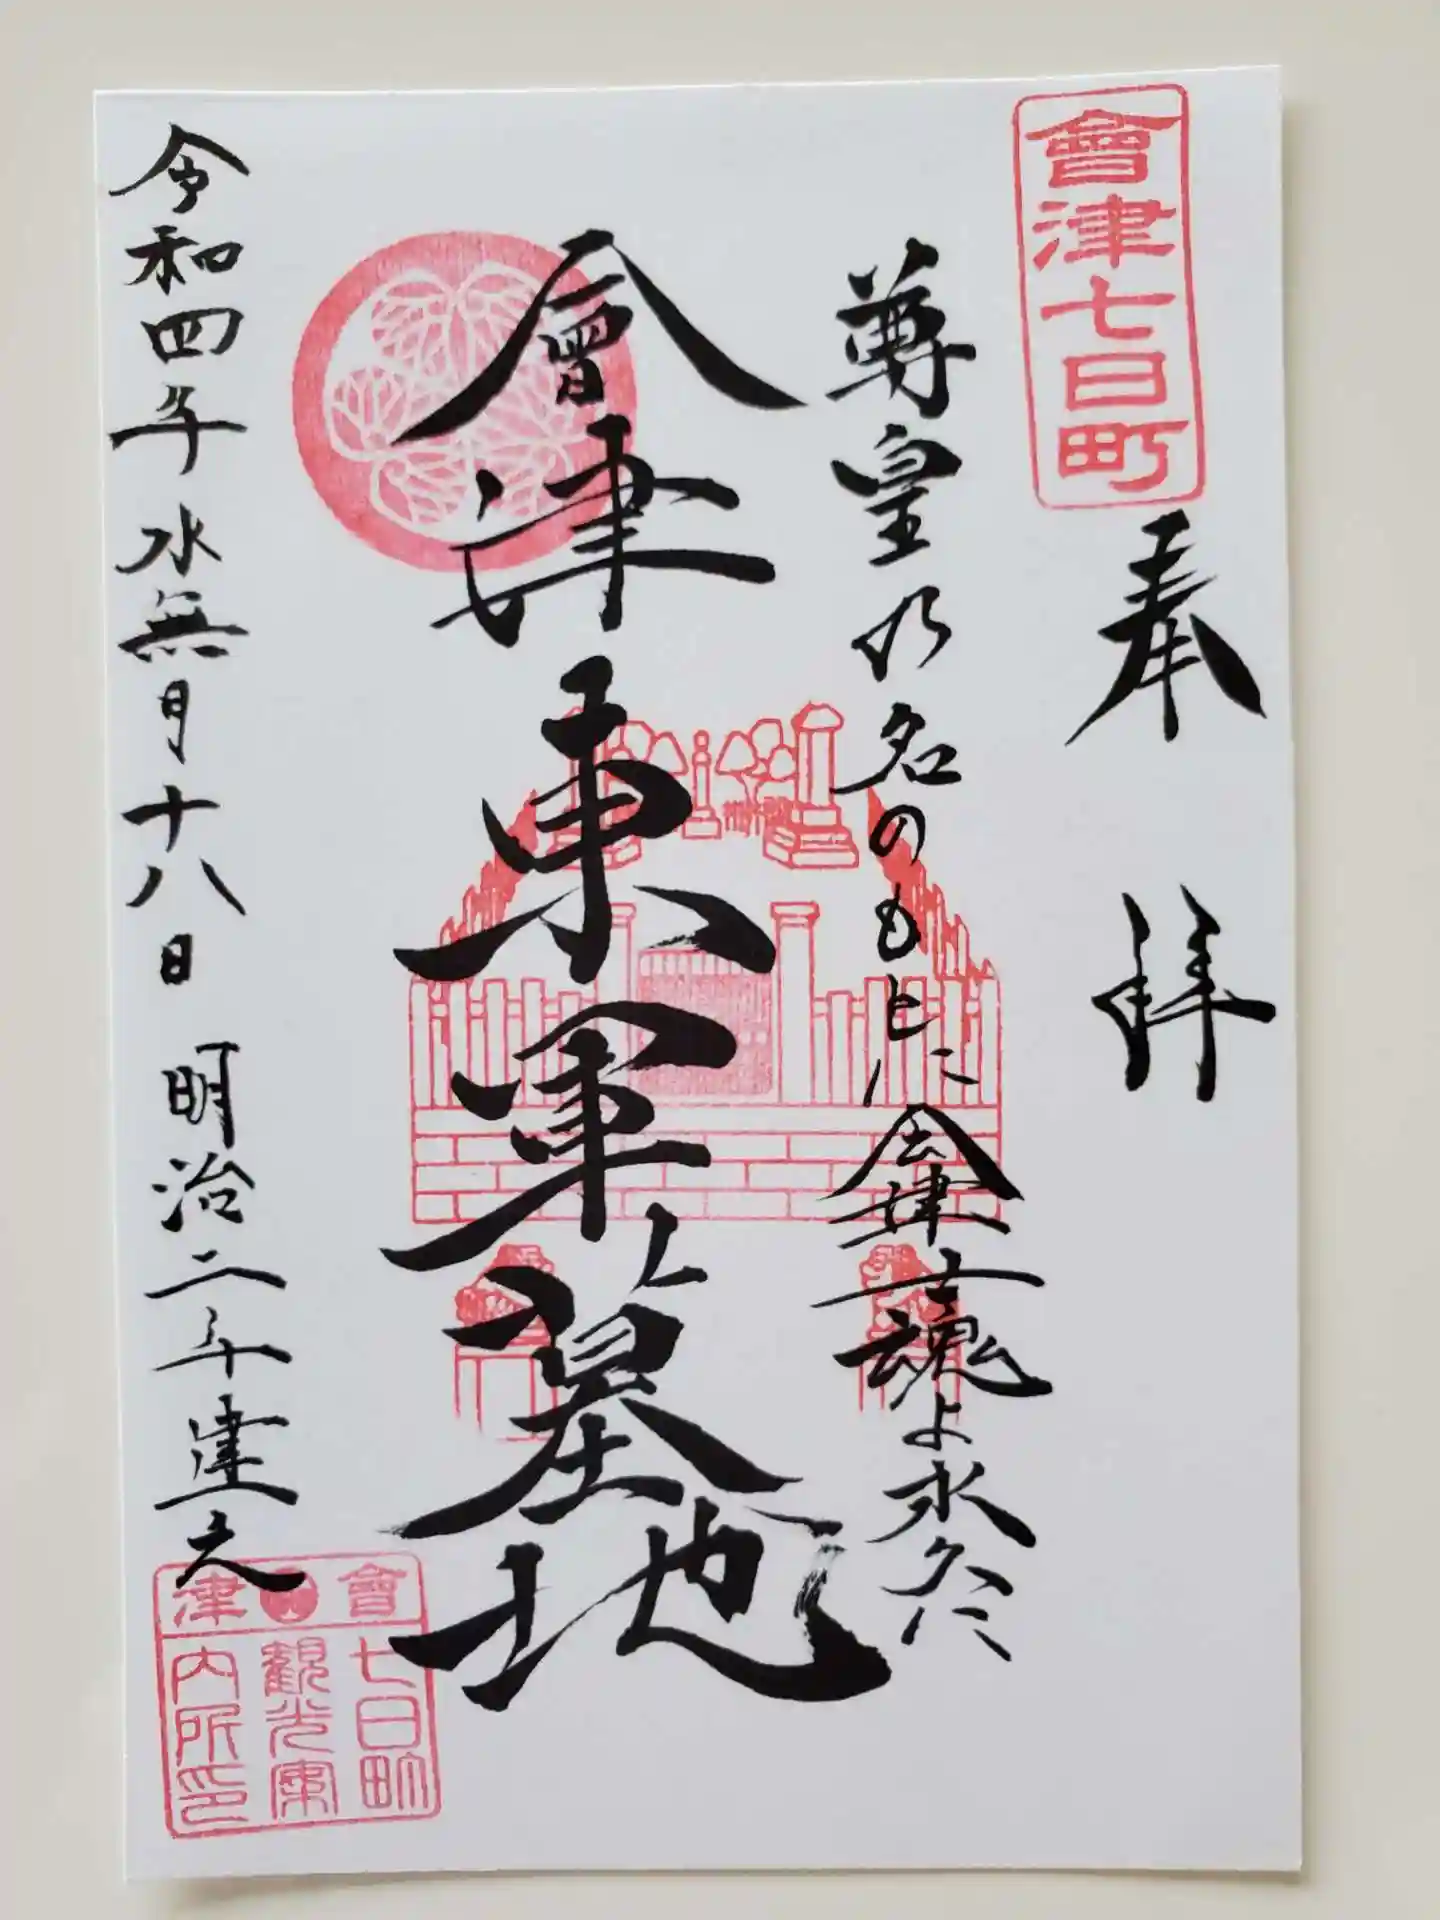 會津七日町
奉拝
尊皇乃名のもとに会津士魂よ永久に
會津東軍墓地
令和四年水無月十八日 明治二年建之
會津
七日町
観光案
内所印